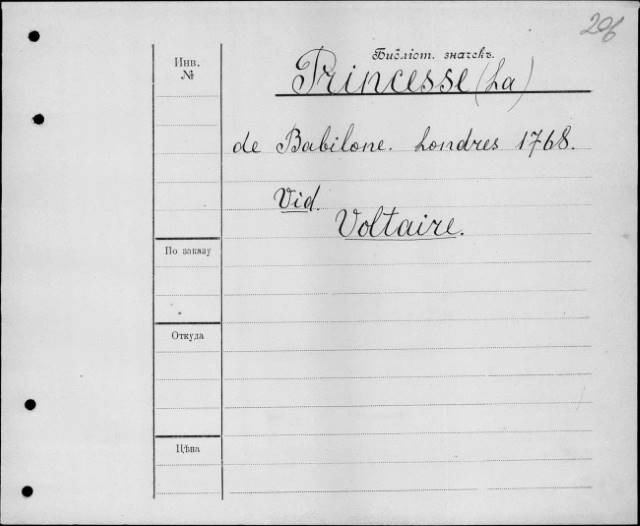 206
Инв.
№
Библіот. значекъ.
Princesse (La)
de Babilone. Londres 1768.
Vid.
Voltaire.
По заказу
Откуда
Цѣна